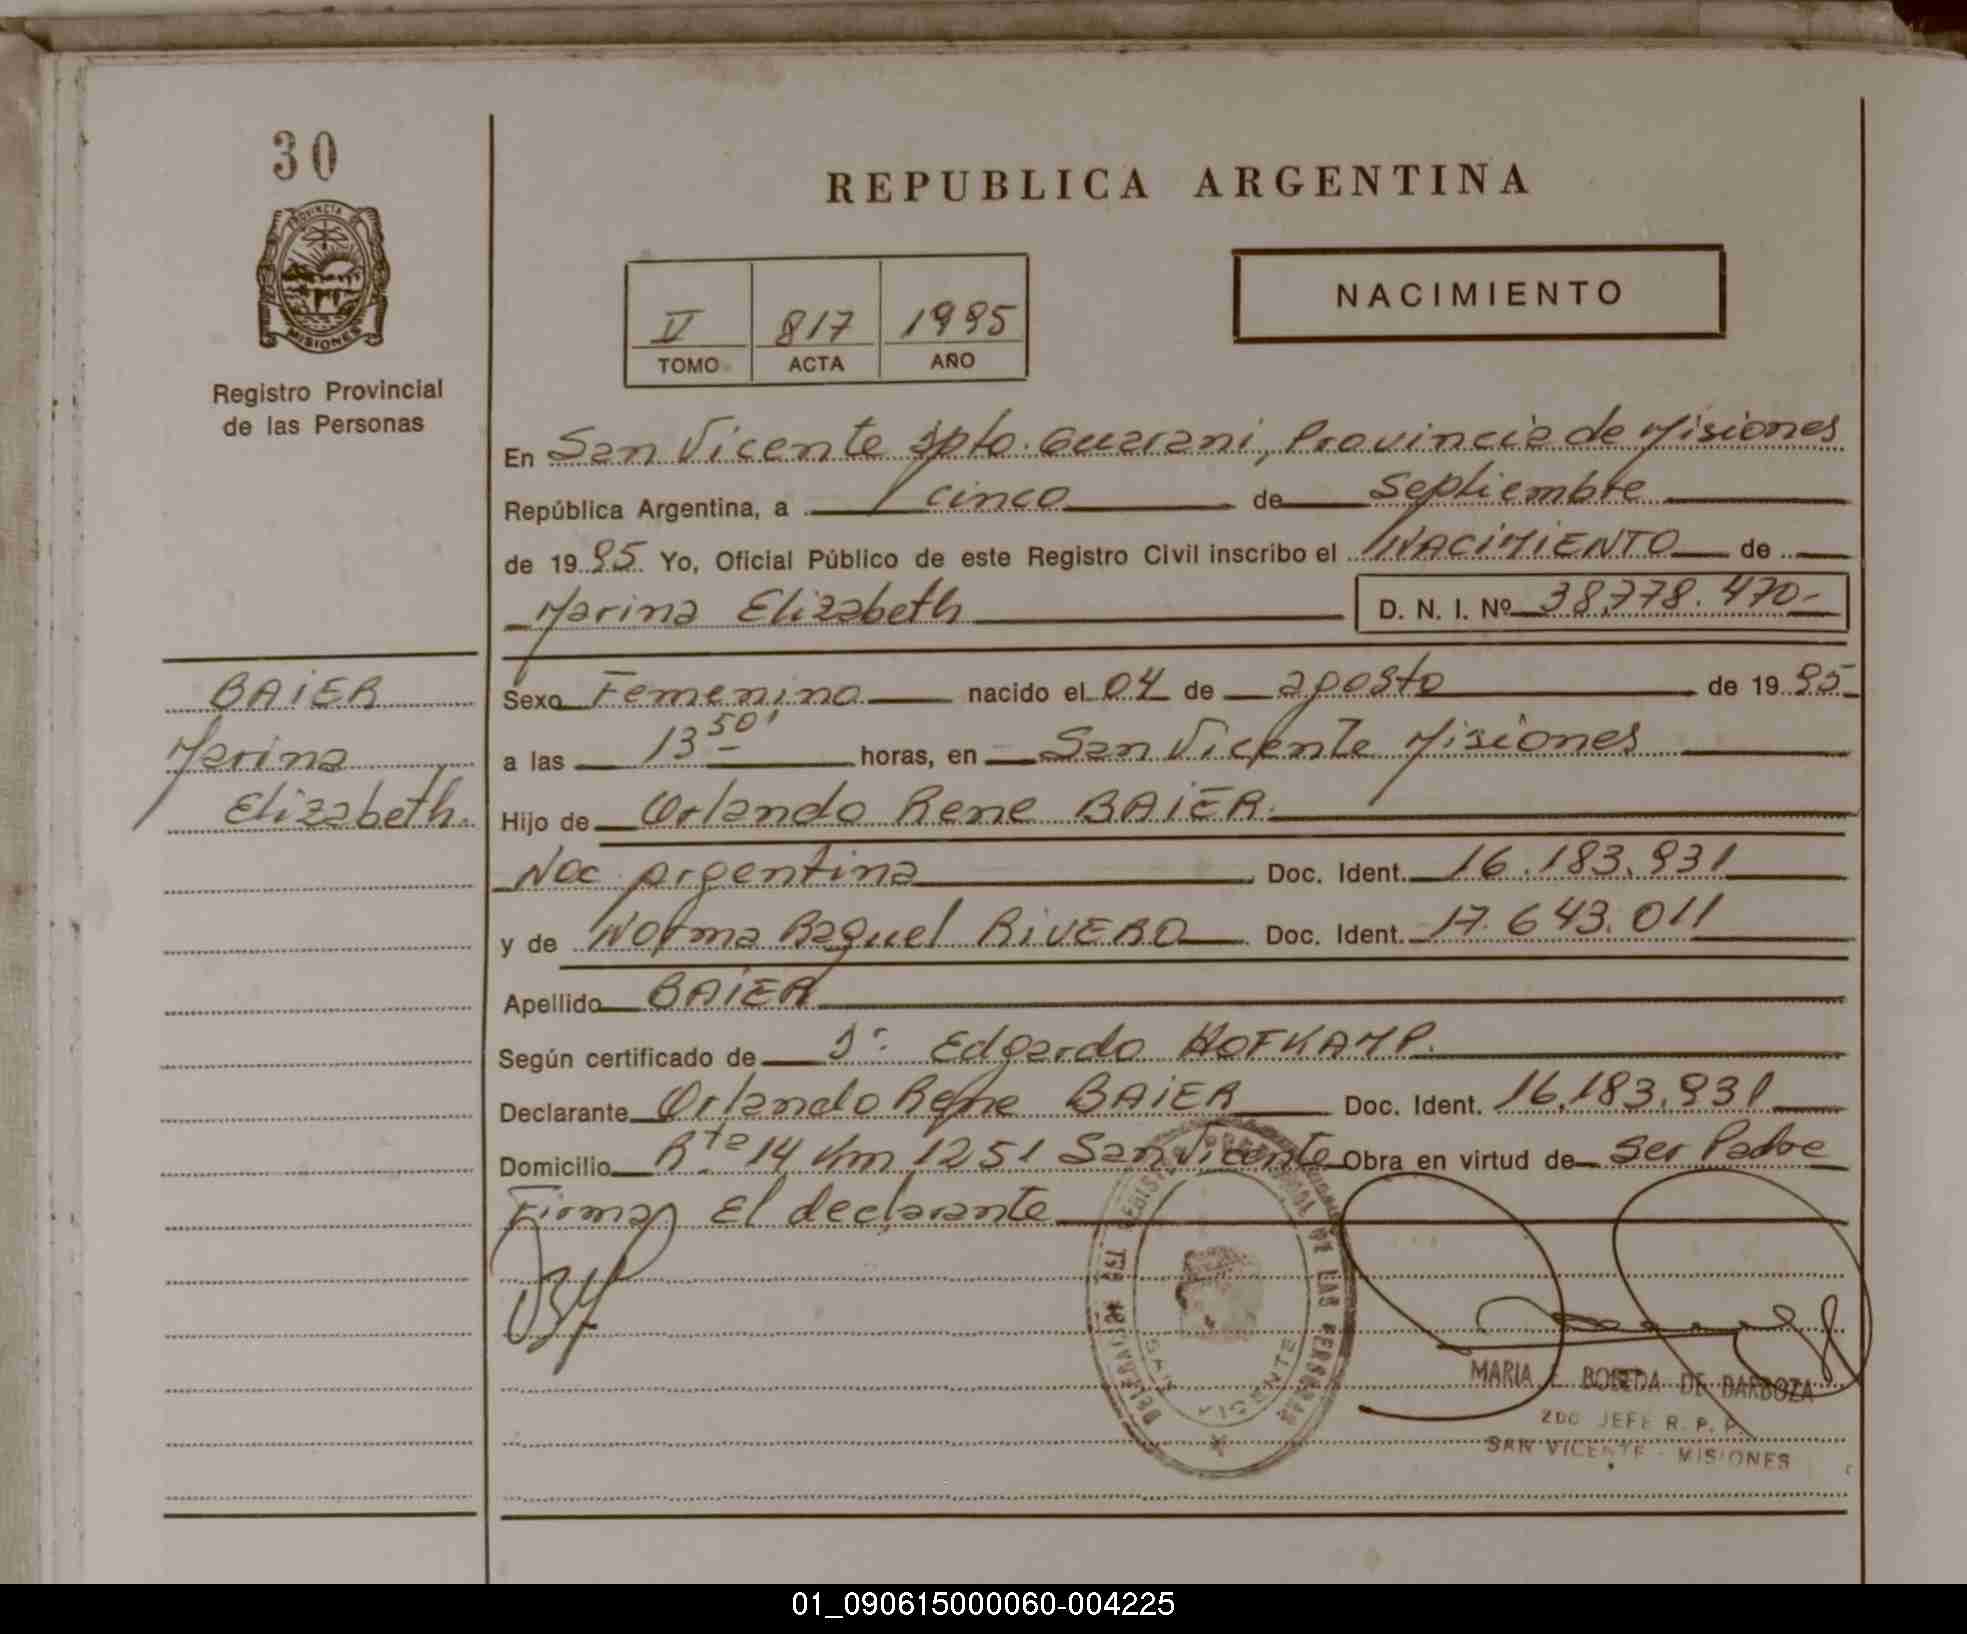 30
PROVINCIA DE
MISIONES
Registro Provincial
de las Personas
REPUBLICA ARGENTINA
V 817 1995
TOMO ACTA AÑO
NACIMIENTO
En San Vicente Dpto. Guarani, Provincia de Misiones
República Argentina, a cinco de Septiembre
de 1995 Yo, Oficial Público de este Registro Civil inscribo el NACIMIENTO de
Marina Elizabeth D. N. I. Nº 38.778.470-
BAiER
Marina
Elizabeth.
Sexo Femenino nacido el 04 de agosto de 1995
a las 13 50' horas, en San Vicente Misiones
Hijo de Orlando Rene BAiER.
Nac argentina Doc. Ident. 16.183.931
y de Norma Raquel RiVERO Doc. Ident. 17.643.011
Apellido BAiER
Según certificado de Dr. Edgardo HOFKAMP.
Declarante Orlando Rene BAiER Doc. Ident. 16.183.931
Domicilio Rta 14 Km 1251 San Vicente Obra en virtud de ser Padre
Firma El declarante
REGISTRO PROVINCIAL DE LAS PERSONAS
SAN VICENTE
MARIA E. DE BARBOZA
2DO JEFE R. P. P.
SAN VICENTE - MISIONES
01_090615000060-004225